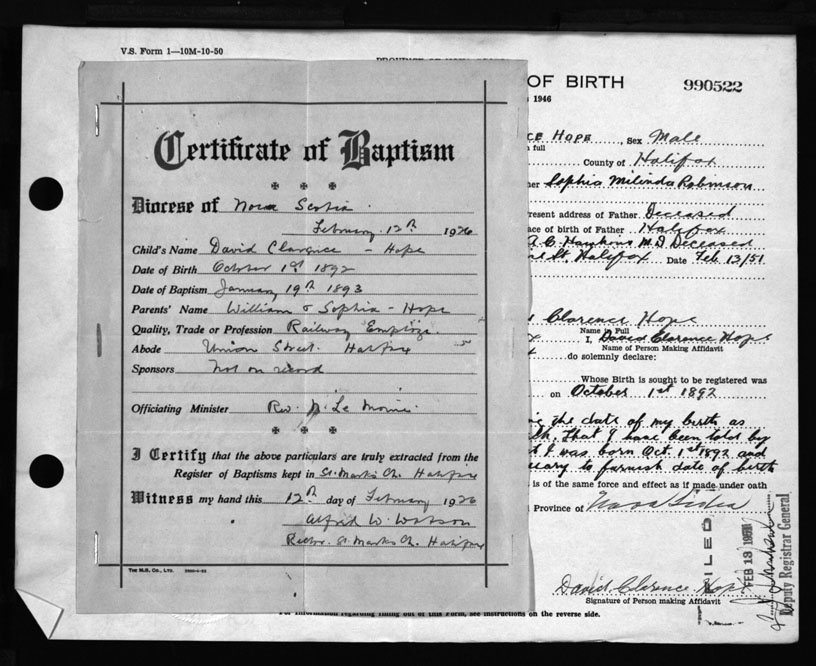 V.S. Form 1—10M-10-50
OF BIRTH
990522
1946
Certificate of Baptism
Diocese of Nova Scotia.
February 12th 1926
Child's Name David Clarence - Hope
Date of Birth October 1st 1892
Date of Baptism January 19th 1893
Parents' Name William & Sophia - Hope
Quality, Trade or Profession Railway
Abode Union Street. Halifax
Sponsors not on record
Officiating Minister Rev. N. Le
I Certify that the above particulars are truly extracted from the
Register of Baptisms kept in St. Marks Ch. Halifax
Witness my hand this 12th day of February 1926
Alfred W. Watson
Rector St. Marks Ch. Halifax
The M.S. Co., Ltd.
CE HOPE Sex Male
full
County of Halifax
her Sophia Milinda Robinson
resent address of Father Deceased
ace of birth of Father Halifax
M.D Deceased
St. Halifax Date Feb 13/51
Clarence Hope
Name in Full
I, David Clarence Hope
Name of Person Making Affidavit
do solemnly declare:
Whose Birth is sought to be registered was
on October 1st 1892
the date of my birth as
That I have been told by
I was born Oct. 1st 1892 and
to furnish date of birth
is of the same force and effect as if made under oath
Province of Nova Scotia
FILED
FEB 13 1951
Deputy Registrar General
David Clarence Hope
Signature of Person making Affidavit
For information regarding filling out of this Form, see instructions on the reverse side.